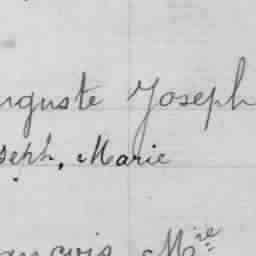 uguste Joseph
seph, Marie
ançois Mie